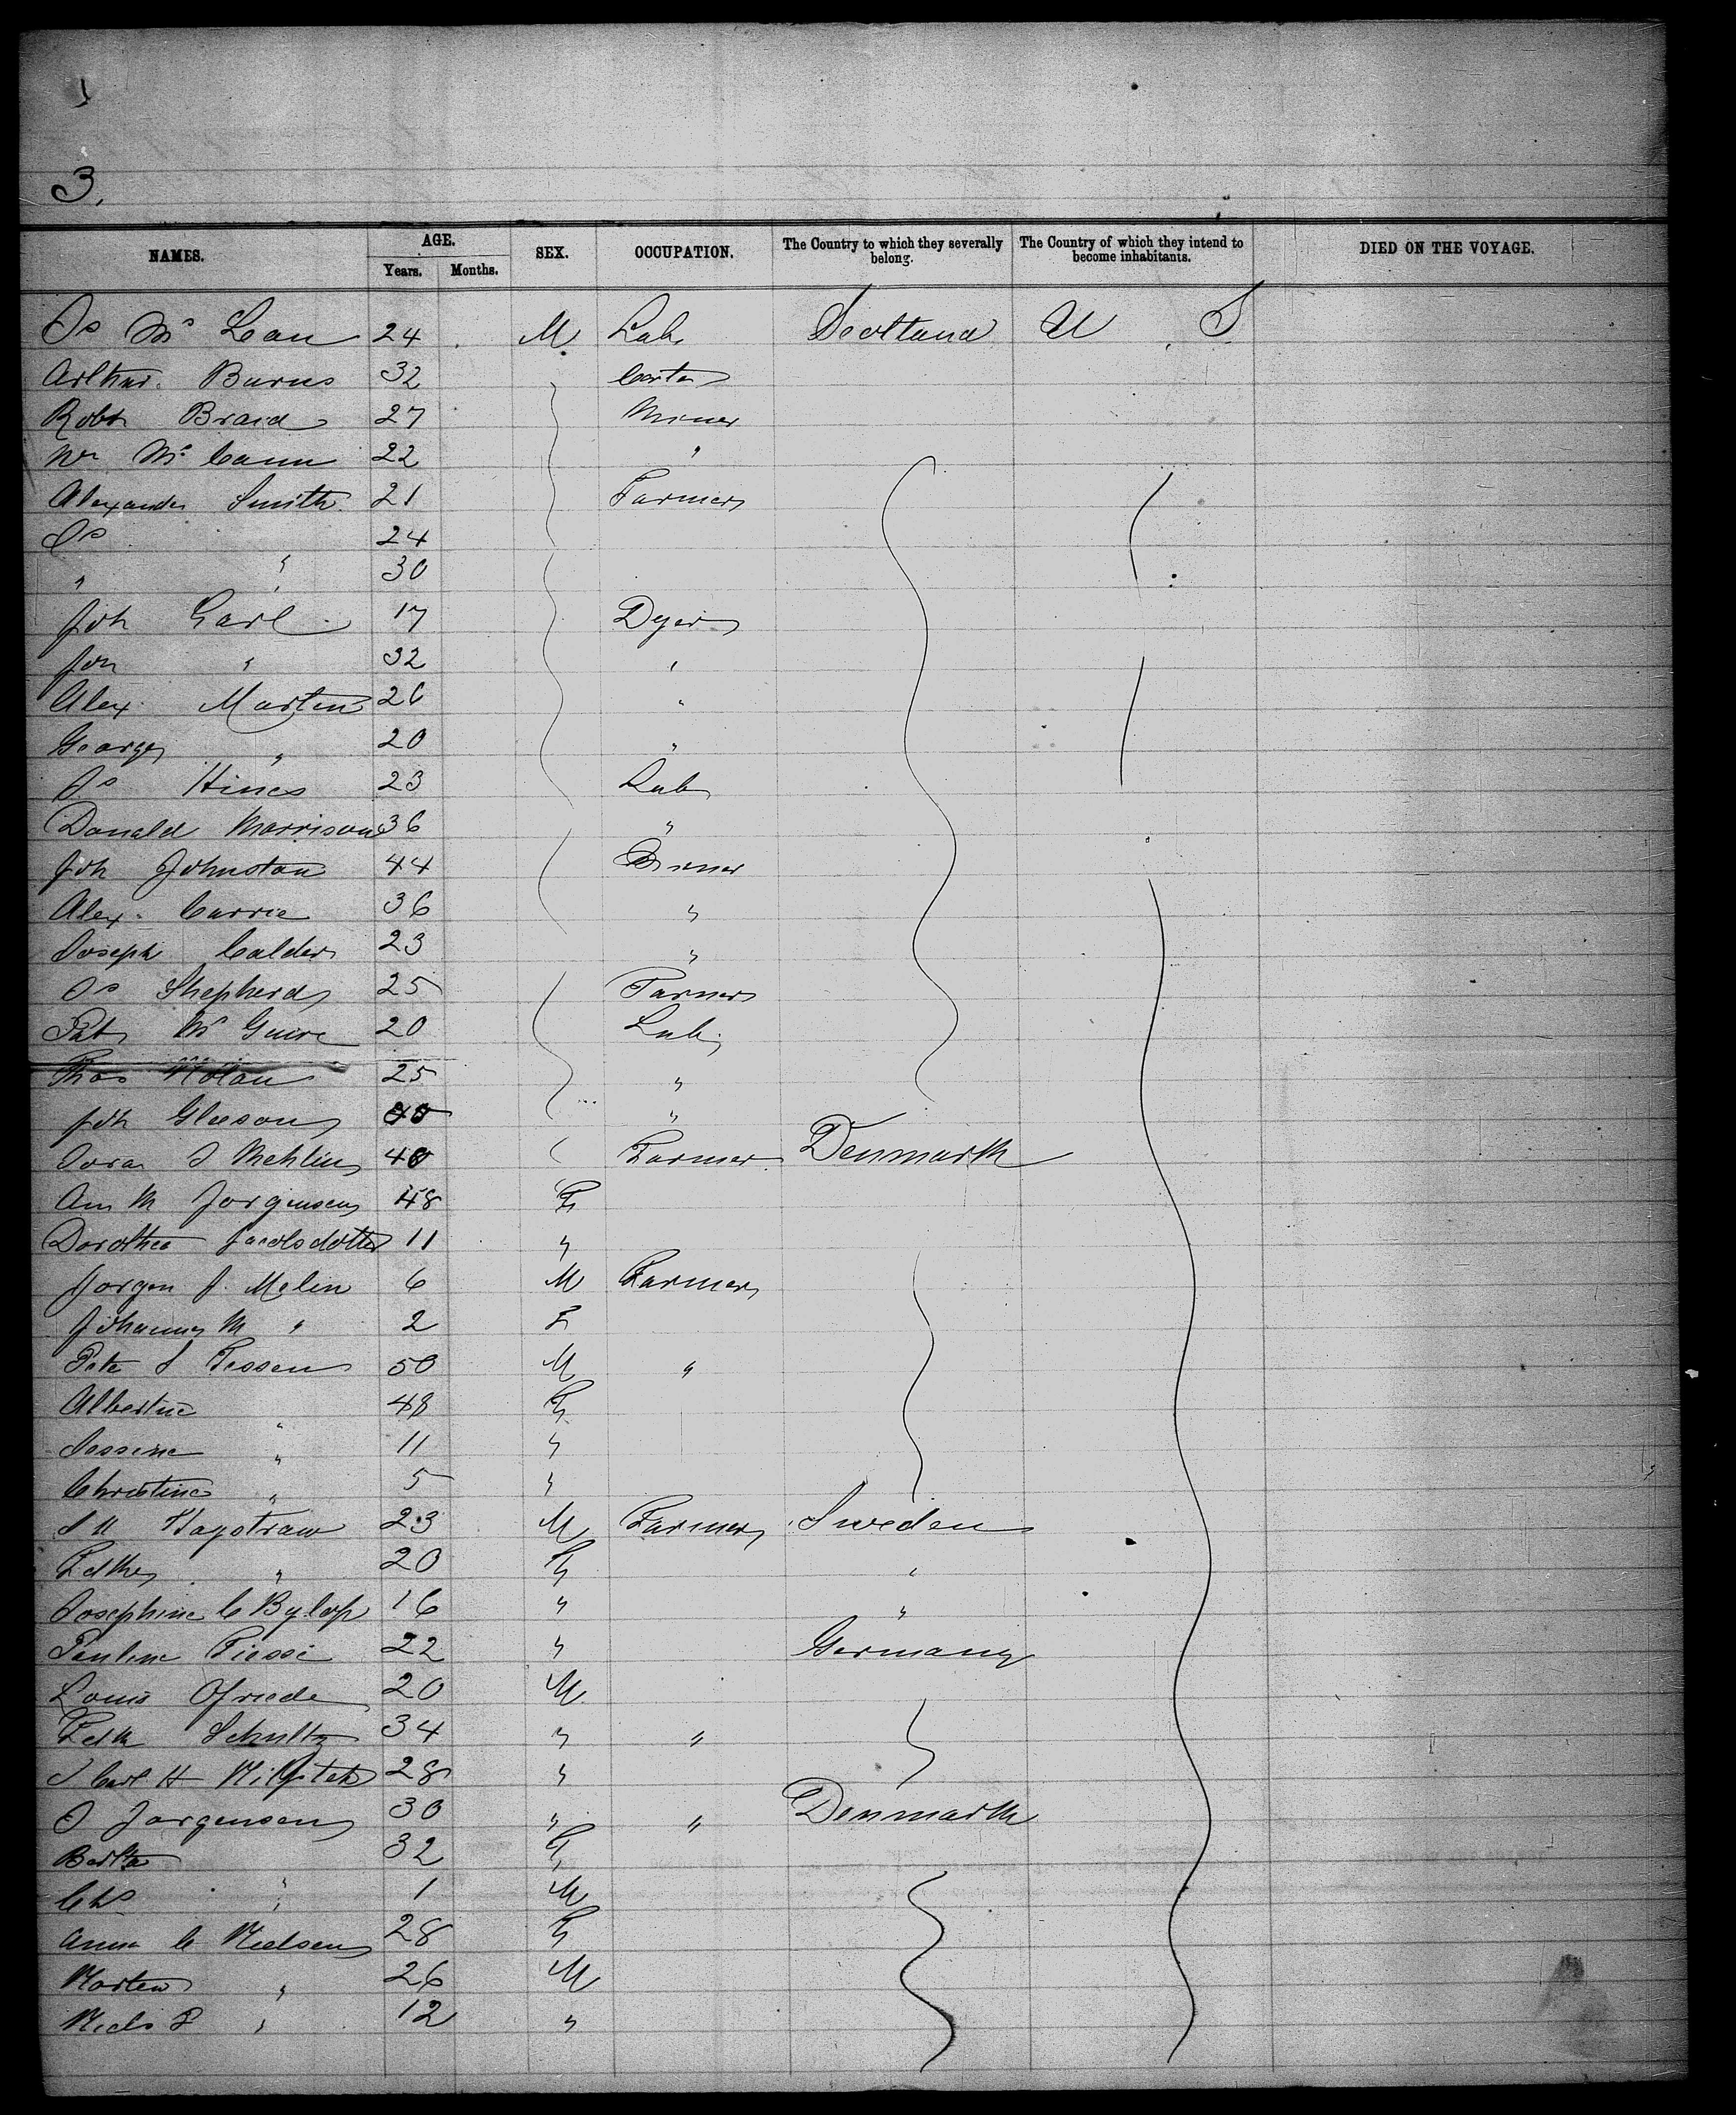 3.
NAMES. AGE. Years. Months. SEX. OCCUPATION. The Country to which they severally belong. The Country of which they intend to become inhabitants. DIED ON THE VOYAGE.
Js Mc Lean 24 M Lab Scotland U S
Arthur Burns 32 Carter
Robt Braid 27 Miner
Wm Mc Cann 22 "
Alexander Smith 21 Farmer
Js 24
" " 30
Joh Earl 17 Dyer
Joh " 32 "
Alex Martin 26 "
George " 20 "
Js Hines 23 Lab
Donald Morrison 36 "
Joh Johnston 44 Miner
Alex. Currie 36 "
Joseph Calder 23 "
Js Shepherd 25 Farmer
Pat Mc Guire 20 Lab
Thos Nolan 25 "
Joh Gleeson "
J Mehlin 40 Farmer Denmark
Ann M Jorgensen 48 F
Dorothea Jacobsdotter 11 "
Jorgen J. Melin 6 M Farmer
Johanna M " 2 F
Peter J Tessen 50 M "
Albertine " 48 F
Jessine " 11 "
Christine " 5 "
23 M Farmer Sweden
" 20 F "
Josephine C 16 "
Pauline Piesse 22 " Germany
Louis 20 M
Schultz 34 " "
Carl H 28 "
J Jorgensen 30 " " Denmark
Bertha 32 F
Chs " 1 M
Anna C Nielsen 28 F
Morten " 26 M
Niels P " 12 "